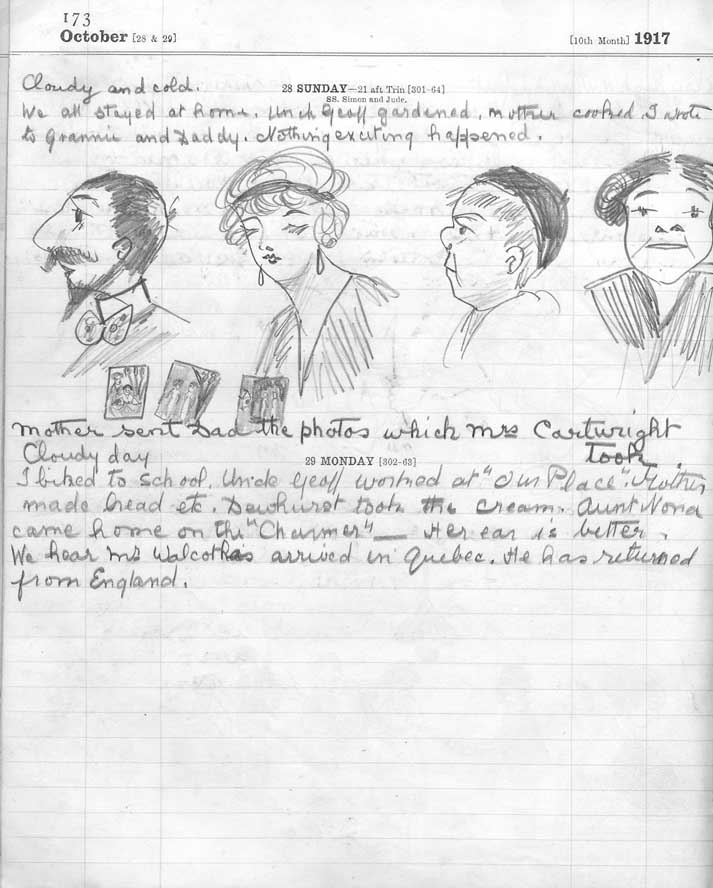 173
October [28 & 29] [10th Month] 1917
Cloudy and cold. 28 SUNDAY—21 aft Trin [301-64]
SS. Simon and Jude.
We all stayed at home. Uncle Geoff gardened, mother cooked. I wrote
to Grannie and Daddy. Nothing exciting happened.
Mother sent Dad the photos which Mrs Cartwright
took
Cloudy day 29 MONDAY [302-63]
I biked to school. Uncle Geoff worked at "Our Place". Mother
made bread etc. Dewhurst took the cream. Aunt Nona
came home on the "Charmer" — Her ear is better.
We hear Mr Walcot has arrived in Quebec. He has returned
from England.